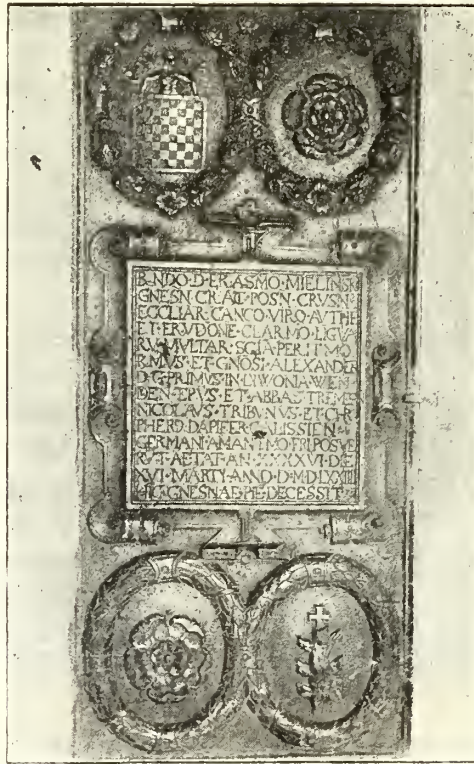 R·NDO·D·ERASMO·MIELINSKI
GNESN·CRAC·POSN·CRVSN
ECCLIAR·CANCO·VIRO·AVTHE
ET·ERVDONE·CLARMO·LIGVA
RV·MVLTAR·SCIA·PERITMO
R·MVS·ET·GNOSI·ALEXANDER
D·G·PRIMVS·IN·LIWONIA·WEN
DEN·EPVS·ET·ABBAS·TREMES
NICOLAVS·TRIBVNVS·ET·CHR
PHERD·DAPIFER·CALISSIEN
GERMANI·AMANTMO·FRI·POSVE
RVT·AETAT·AN·
XVI·MARTY·ANNO·D·M·D·LXXIII
HIC·GNESNAE·PIE·DECESSIT